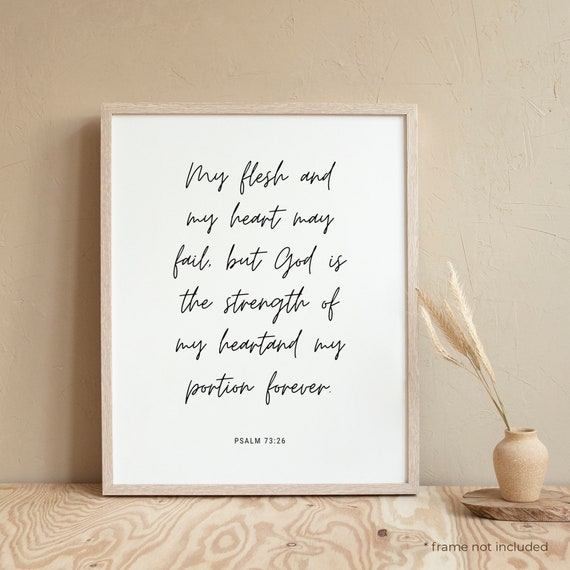 My flesh and
my heart may
fail, but God is
the strength of
my heartand my
portion forever.
PSALM 73:26
* frame not included